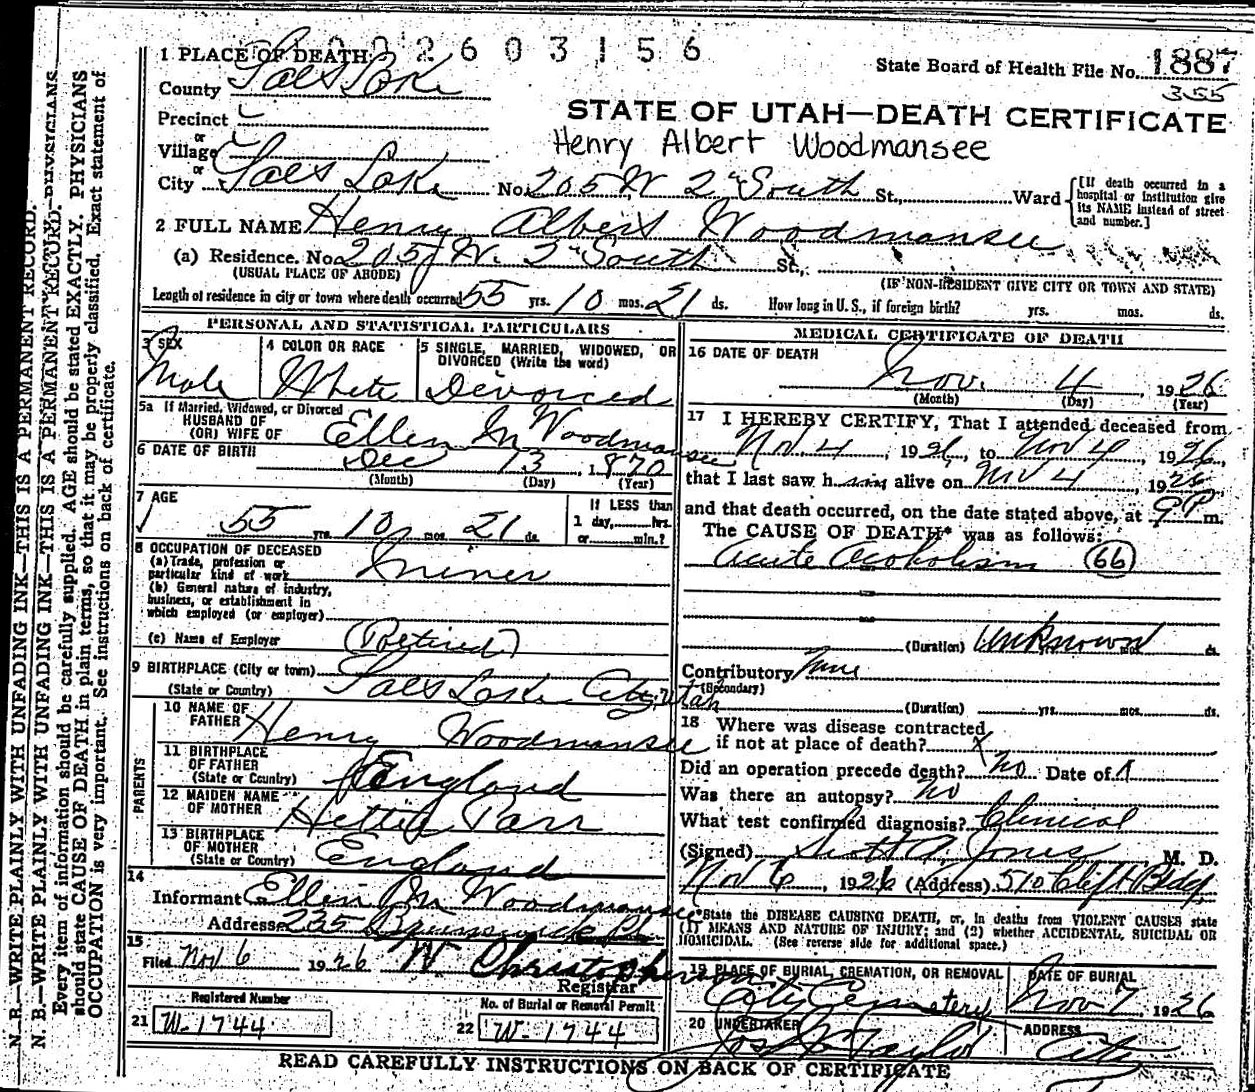 1002603156
1 PLACE OF DEATH
State Board of Health File No. 1887
355
County Salt Lake
STATE OF UTAH—DEATH CERTIFICATE
Precinct
or
Henry Albert Woodmansee
Village
or
City Salt Lake No. 205 W 2" South St., Ward [If death occurred in a hospital or institution give its NAME instead of street and number.]
2 FULL NAME Henry Albert Woodmansee
(a) Residence. No. 205 W. 2" South St.,
(USUAL PLACE OF ABODE) (IF NON-RESIDENT GIVE CITY OR TOWN AND STATE)
Length of residence in city or town where death occurred 55 yrs. 10 mos. 21 ds. How long in U. S., if foreign birth? yrs. mos. ds.
PERSONAL AND STATISTICAL PARTICULARS
3 SEX
Male
4 COLOR OR RACE
White
5 SINGLE, MARRIED, WIDOWED, OR DIVORCED (Write the word)
Divorced
5a If Married, Widowed, or Divorced
HUSBAND OF
(OR) WIFE OF Ellen M Woodmansee
6 DATE OF BIRTH Dec 13, 1870
(Month) (Day) (Year)
7 AGE
55 yrs. 10 mos. 21 ds.
If LESS than
1 day, hrs.
or min.?
8 OCCUPATION OF DECEASED
(a) Trade, profession or
particular kind of work Miner
(b) General nature of industry,
business, or establishment in
which employed (or employer)
(c) Name of Employer (Retired)
9 BIRTHPLACE (City or town)
(State or Country) Salt Lake City, Utah
PARENTS
10 NAME OF
FATHER Henry Woodmansee
11 BIRTHPLACE
OF FATHER
(State or Country) England
12 MAIDEN NAME
OF MOTHER Hettie Parr
13 BIRTHPLACE
OF MOTHER
(State or Country) England
14
Informant Ellen M Woodmansee
Address 235 Brunswick
15
Filed Nov 6 1926 W Christopherson
Registrar
Registered Number
21 W-1744
No. of Burial or Removal Permit
22 W-1744
MEDICAL CERTIFICATE OF DEATH
16 DATE OF DEATH
Nov. 4 1926
(Month) (Day) (Year)
17 I HEREBY CERTIFY, That I attended deceased from
Nov 4, 1926, to Nov 4, 1926,
that I last saw him alive on Nov 4, 1926
and that death occurred, on the date stated above, at 9 P m.
The CAUSE OF DEATH* was as follows:
Acute Acoholism (66)
(Duration) Unknown mos. ds.
Contributory None
(Secondary)
(Duration) yrs. mos. ds.
18 Where was disease contracted
if not at place of death? X
Did an operation precede death? No Date of
Was there an autopsy? No
What test confirmed diagnosis? Clinical
(Signed) Scott A Jones M. D.
Nov 6, 1926 (Address) 510 Clift Bldg.
*State the DISEASE CAUSING DEATH, or, in deaths from VIOLENT CAUSES state
(1) MEANS AND NATURE OF INJURY; and (2) whether ACCIDENTAL, SUICIDAL OR
HOMICIDAL. (See reverse side for additional space.)
19 PLACE OF BURIAL, CREMATION, OR REMOVAL
City Cemetery
DATE OF BURIAL
Nov 7, 1926
20 UNDERTAKER
Jos Taylor
ADDRESS
City
READ CAREFULLY INSTRUCTIONS ON BACK OF CERTIFICATE
N. B.—WRITE PLAINLY WITH UNFADING INK—THIS IS A PERMANENT RECORD.
N. B.—WRITE PLAINLY WITH UNFADING INK—THIS IS A PERMANENT RECORD. PHYSICIANS
Every item of information should be carefully supplied. AGE should be stated EXACTLY. PHYSICIANS
should state CAUSE OF DEATH in plain terms, so that it may be properly classified. Exact statement of
OCCUPATION is very important. See instructions on back of certificate.